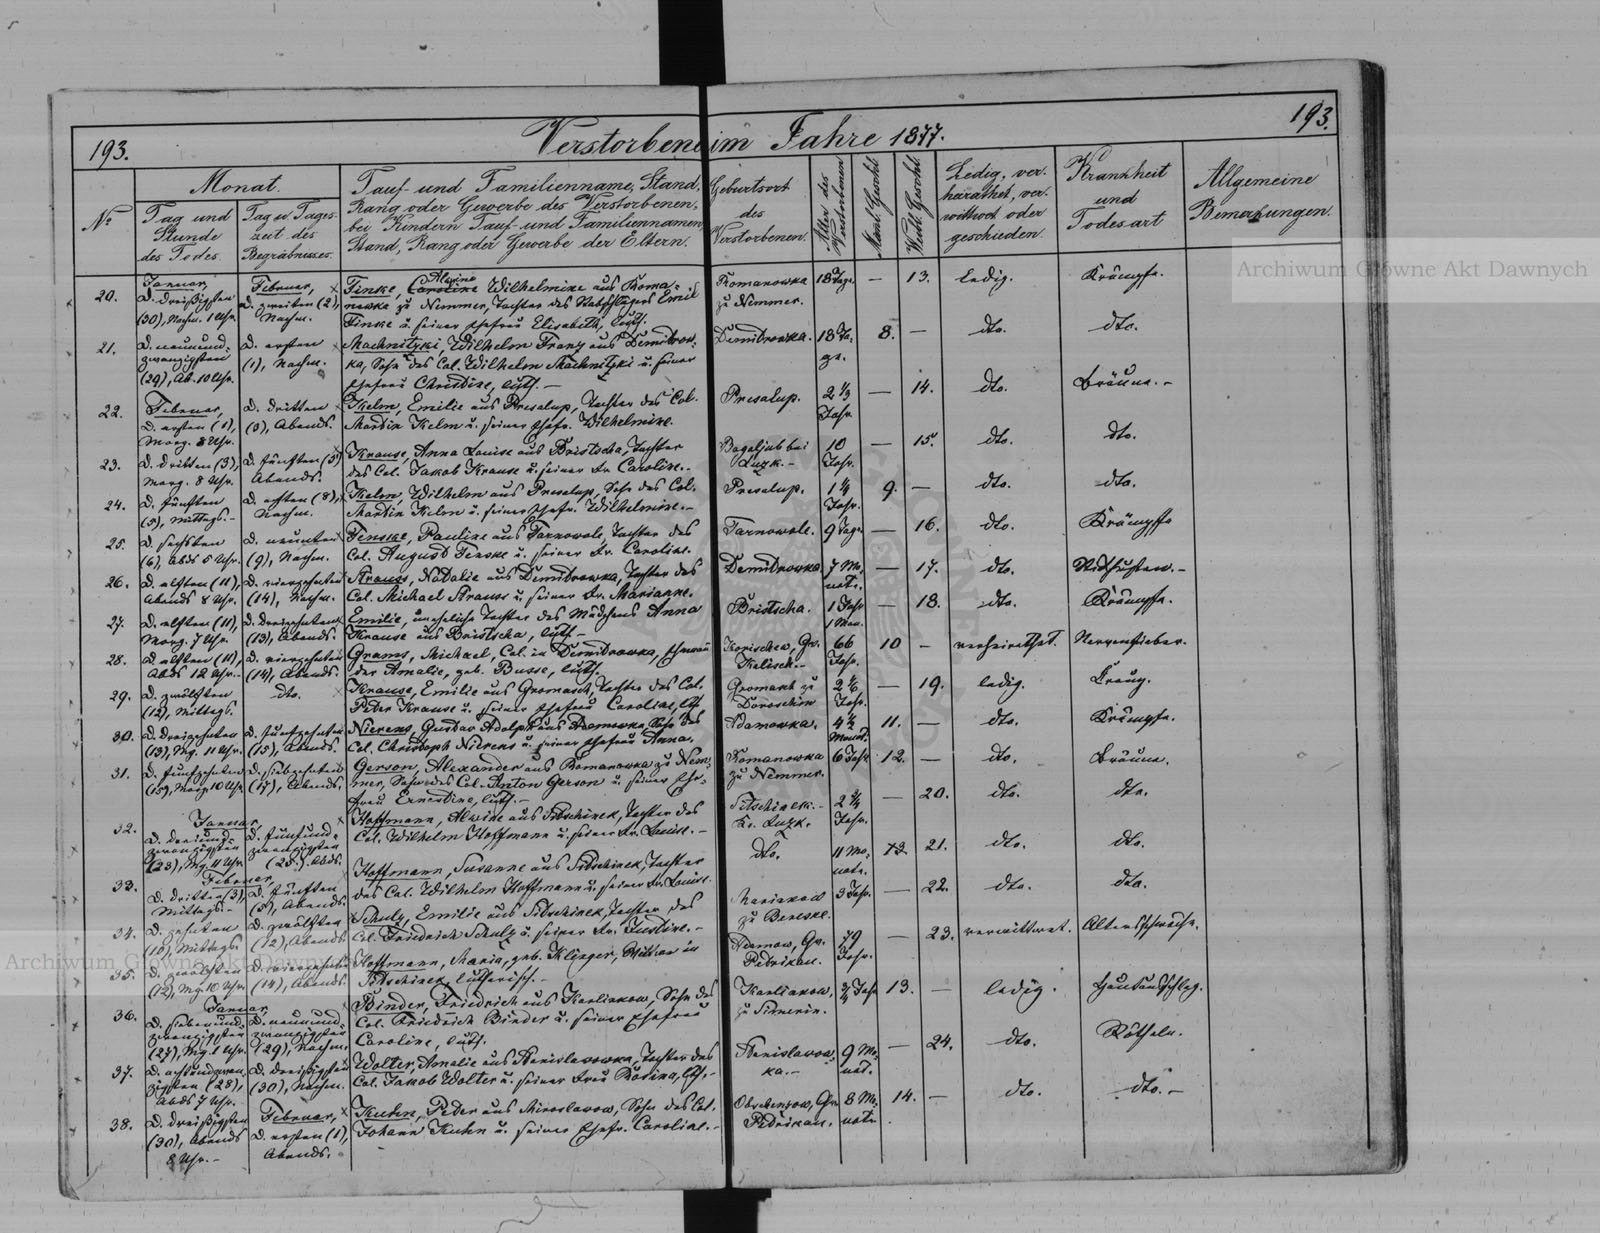 193.
Verstorbene im Jahre 1877.
193.
No
Monat.
Tag und Stunde des Todes.
Tag u. Tages-
zeit des
Begräbnisses.
Tauf- und Familienname, Stand,
Rang oder Gewerbe des Verstorbenen,
bei Kindern Tauf- und Familiennamen,
Stand, Rang oder Gewerbe der Eltern.
Geburtsort
des
Verstorbenen.
Alter des
Verstorbenen
Männl. Geschl.
Weibl. Geschl.
Ledig, ver-
heirathet, ver-
wittwet oder
geschieden.
Krankheit
und
Todesart
Allgemeine
Bemerkungen.
20.
Januar,
D. dreißigsten
(30), Nachm. 1 Uhr.
Februar,
D. zweiten (2),
Nachm.
Alwine
Finske, Caroline Wilhelmine aus Roma-
nowka zu Nemmer, Tochter des Emil
Finske u. seiner Ehefrau Elisabeth, luth.
Romanowka
zu Nemmer.
18 Tage
—
13.
ledig.
Krämpfe.
21.
D. neunund-
zwanzigsten
(29), Ab. 10 Uhr.
D. ersten
(1), Nachm.
Machnitzki, Wilhelm Franz aus Demitrow-
ka, Sohn des Col. Wilhelm Machnitzki u. seiner
Ehefrau Christine, luth. —
Demitrowka.
18 Ta-
ge.
8.
—
dto.
dto.
22.
Februar,
D. ersten (1),
Morg. 8 Uhr.
D. dritten
(3), Abends.
Kelm, Emilie aus Presalup, Tochter des Col.
Martin Kelm u. seiner Ehefr. Wilhelmine.
Presalup.
2 1/3
Jahr.
—
14.
dto.
Bräune. -
23.
D. dritten (3),
Morg. 8 Uhr.
D. fünften (5)
Abends.
Krause, Anna Louise aus Bristscha, Tochter
des Col. Jakob Krause u. seiner Fr. Caroline. -
Bogoljub bei
Luzk. -
10
Jahr.
—
15.
dto.
dto.
24.
D. fünften
(5), Mittags. -
D. achten (8),
Nachm.
Kelm, Wilhelm aus Presalup, Sohn des Col.
Martin Kelm u. seiner Ehefr. Wilhelmine. -
Presalup.
1 1/4
Jahr.
9.
—
dto.
dto.
25.
D. sechsten
(6), Abds 5 Uhr.
D. neunten
(9), Nachm.
Fenske, Pauline aus Tarnowole, Tochter des
Col. August Fenske u. seiner Fr. Caroline.
Tarnowole.
9 Tage
—
16.
dto.
Krämpfe
26.
D. elften (11),
Abends 8 Uhr.
D. vierzehnten
(14), Nachm.
Strauss, Natalie aus Demitrowka, Tochter des
Col. Michael Strauss u. seiner Fr. Marianne.
Demitrowka
7 Mo-
nate.
—
17.
dto.
27.
D. elften (11),
Morg. 7 Uhr.
D. dreizehnten
(13), Abends.
Emilie, uneheliche Tochter des Mädchens Anna
Krause aus Bristscha, luth. -
Bristscha.
1 Jahr
1 Mon.
—
18.
dto.
Krämpfe.
28.
D. elften (11),
Abds 12 Uhr. -
D. vierzehnten
(14), Abends.
Grams, Michael, Col. in Demitrowka, Ehemann
der Amalie, geb. Busse, luth.
Gv.
Kalisch. -
66
Jahr.
10
—
verheirathet.
Nervenfieber.
29.
D. zwölften
(12), Mittags.
dto.
Krause, Emilie aus Gromasch, Tochter des Col.
Peter Krause u. seiner Ehefrau Caroline,
zu
Doroschin
2 1/2
Jahr.
—
19.
ledig.
30.
D. dreizehnten
(13), Mg. 11 Uhr.
D. fünfzehnten
(15), Abends.
Nierens, Gustav Adolph aus Adamowka, Sohn des
Col. Christoph Nierens u. seiner Ehefrau Anna.
Adamowka.
4 1/2
Monat.
11.
—
dto.
Krämpfe.
31.
D. fünfzehnten
(15), Morg. 10 Uhr
D. siebzehnten
(17), Abends.
Gerson, Alexander aus Romanowka zu Nem-
mer, Sohn des Col. Anton Gerson u. seiner Ehe-
frau Ernestine, luth. -
Romanowka
zu Nemmer.
6 Jahr
12.
—
dto.
Bräune.
32.
Januar,
D. dreiund-
zwanzigsten
(23), Mg. 11 Uhr
D. fünfund-
zwanzigsten
(25.) Abds.
Hoffmann, Alwine aus Sitschinek, Tochter des
Col. Wilhelm Hoffmann u. seiner Fr. Louise. -
Sitschinek. -
Kr. Luzk.
2 3/4
Jahr.
—
20.
dto.
dto.
33.
Februar,
D. dritten (3),
Mittags. -
D. fünften
(5), Abends.
Hoffmann, Susanne aus Sitschinek, Tochter
des Col. Wilhelm Hoffmann u. seiner Fr. Louise.
dto.
11 Mo-
nate.
13
21.
dto.
dto.
34.
D. zehnten
(10), Mittags
D. zwölften
(12), Abends.
Schulz, Emilie aus Sitschinek, Tochter des
Col. Friedrich Schulz u. seiner Fr. Justine. -
Marianow
zu Bereske.
3 Jahr.
—
22.
dto.
dto.
35.
D. zwölften
(12), Mg. 10 Uhr
D. vierzehnten
(14), Abends.
Hoffmann, Maria, geb. Klinger, Wittwe in
Sitschinek, lutherisch. -
Gv.
Petrikau.
79
Jahr.
—
23.
verwittwet.
Altersschwäche.
36.
Januar,
D. siebenund-
zwanzigsten
(27), Mg. 1 Uhr.
D. neunund-
zwanzigsten
(29), Nachm.
Binder, Friedrich aus Karlinkow, Sohn des
Col. Friedrich Binder u. seiner Ehefrau
Caroline, luth.
Karlinkow,
3/4 Jahr
13.
—
ledig.
Hautausschlag.
37.
D. achtundzwan-
zigsten (28),
Abds 7 Uhr.
D. dreißigsten
(30), Nachm.
Wolter, Amalie aus Stanislawowka, Tochter des
Col. Jakob Wolter u. seiner Frau Rosina, -
Stanislawow-
ka. -
9 Mo-
nat.
—
24.
dto.
Rötheln.
38.
D. dreißigsten
(30), Abends
8 Uhr. -
Februar,
D. ersten (1),
Abends.
Kuhn, Peter aus Miroslawow, Sohn des Col.
Johann Kuhn u. seiner Ehefr. Caroline. -
Gv.
Petrikau.
8 Mo-
nate
14.
—
dto.
dto. -
Archiwum Główne Akt Dawnych
Archiwum Główne Akt Dawnych